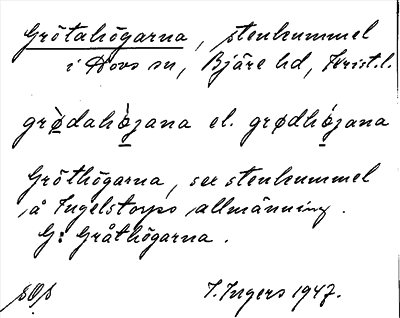 Grötahögarna, stenkummel
i Hovs sn, Bjäre hd, Krist. l.
grødahøjana el. grødhøjana
Gröthögarna, ser stenkummel
å Ingelstorps allmänning.
G: Gråthögarna.
I. Ingers 1947.